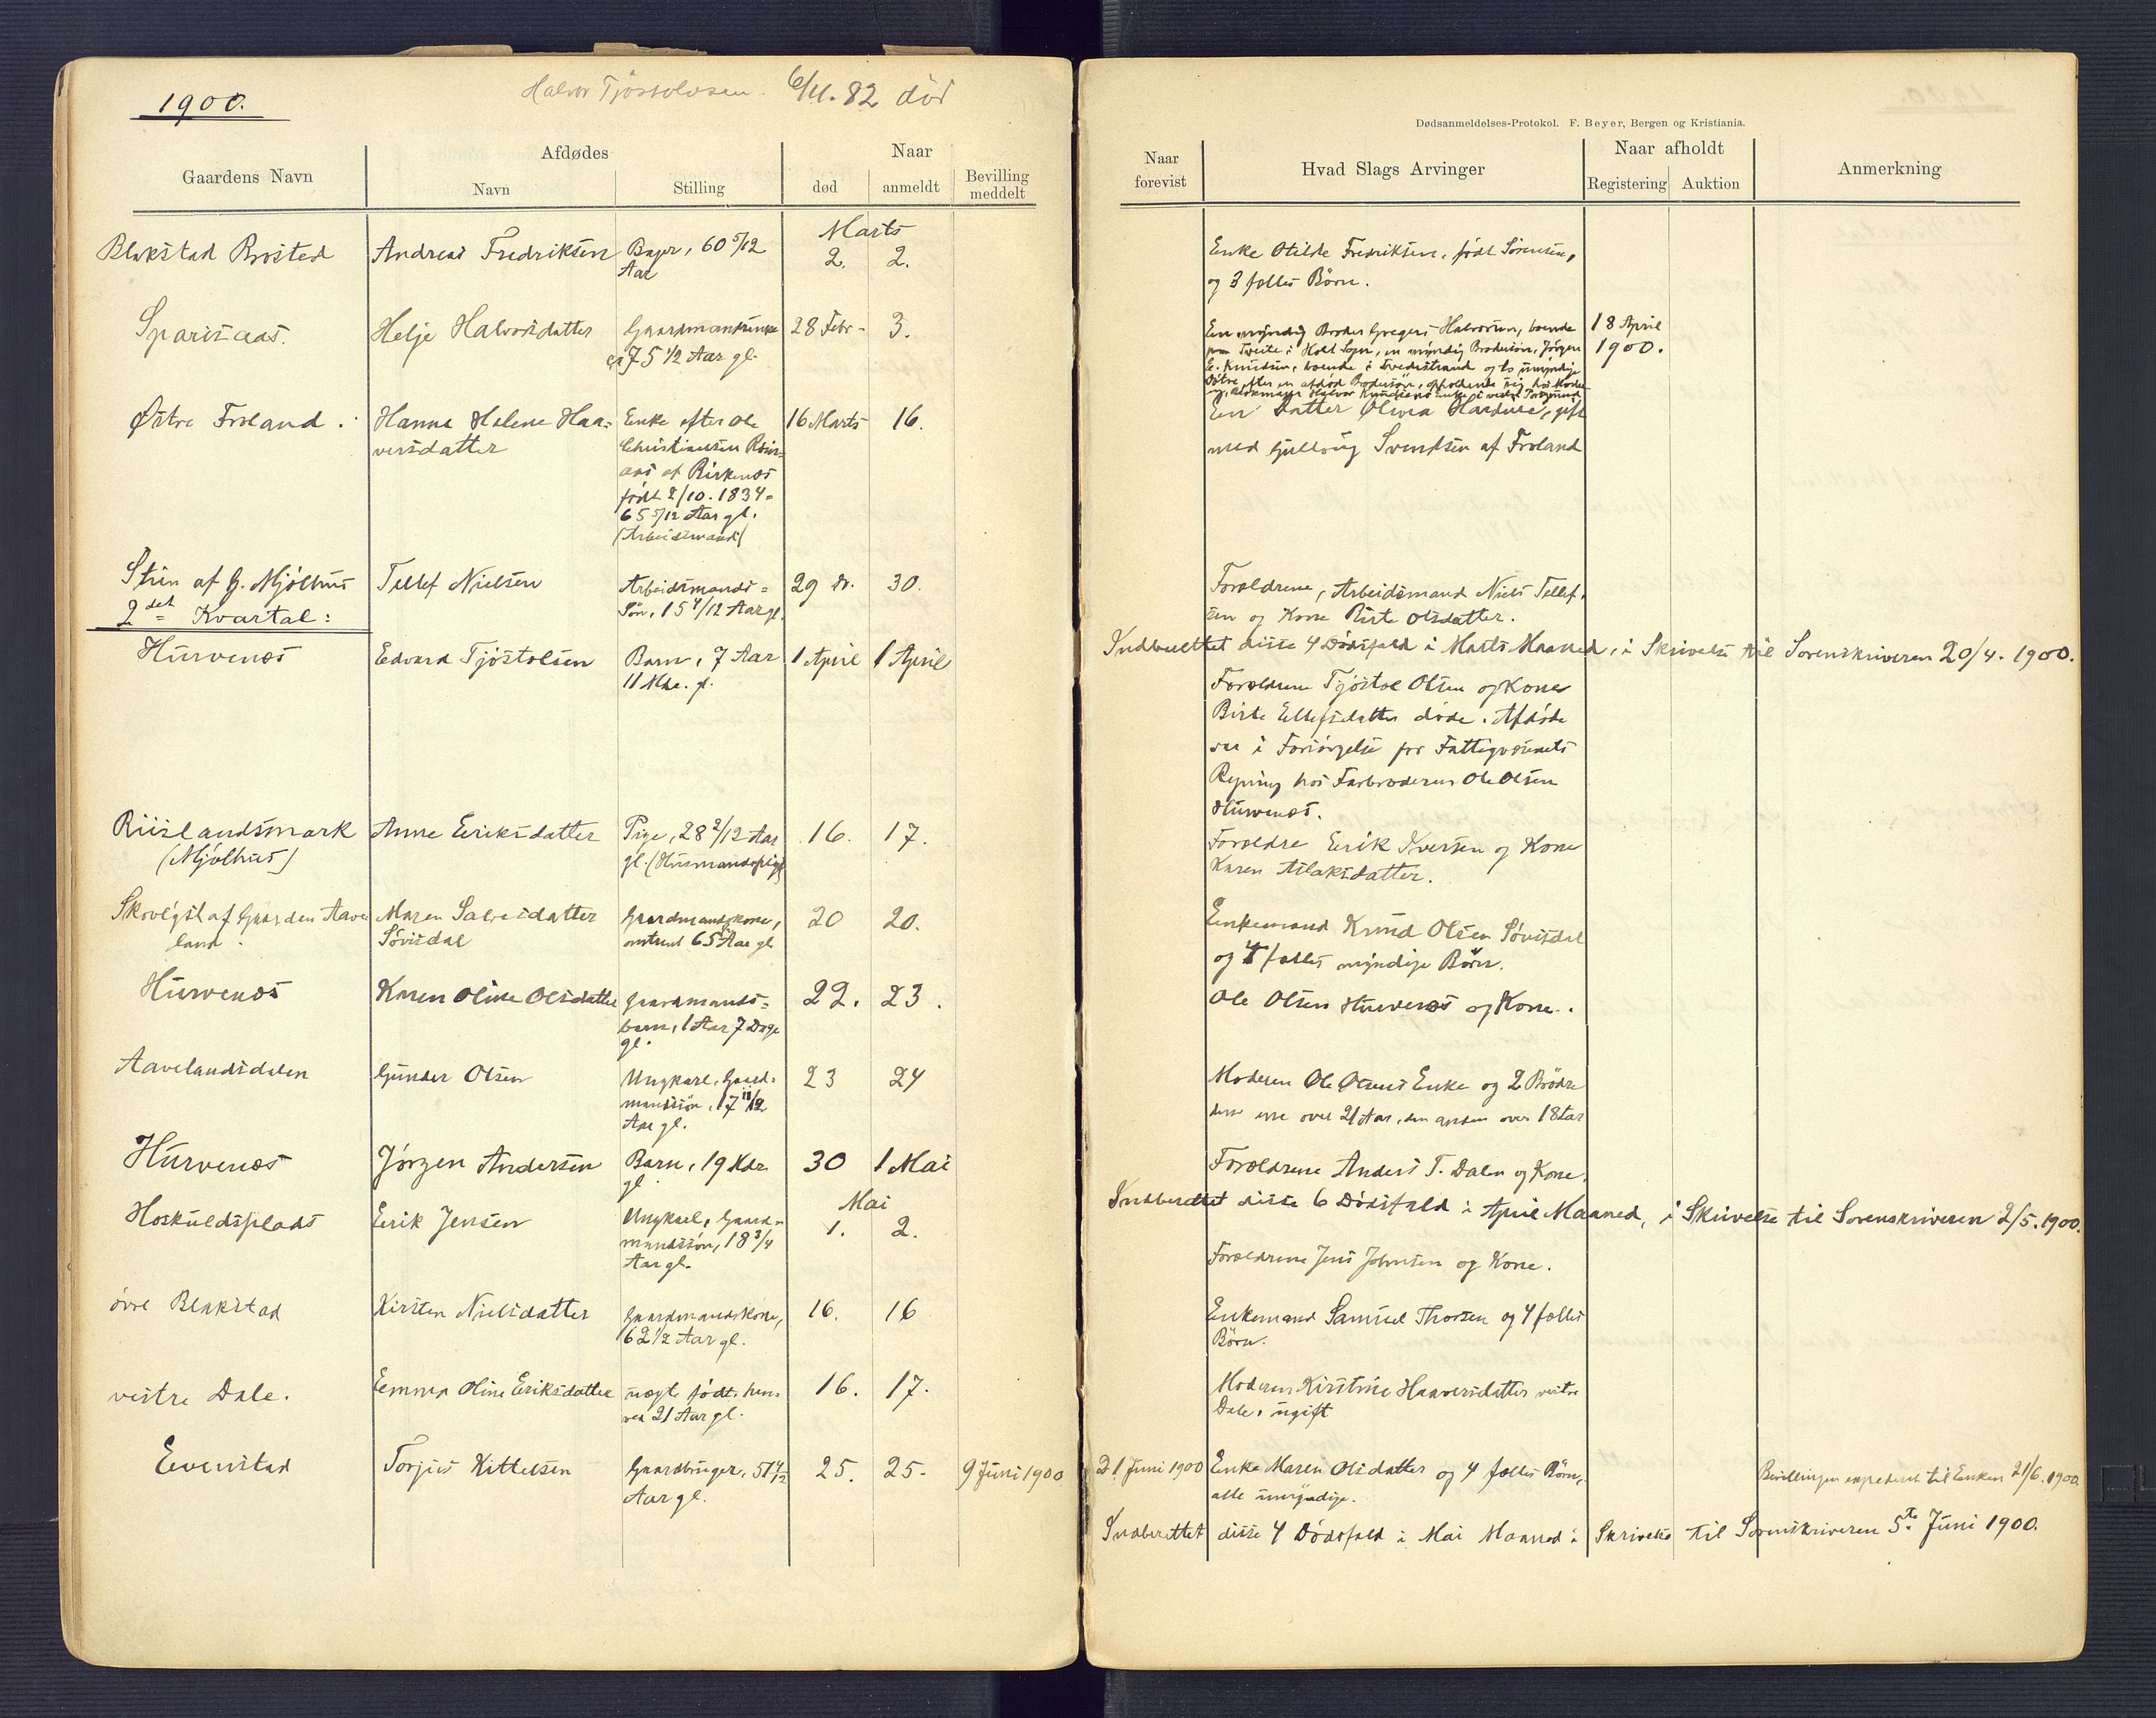 1900.
Halvor Tjöstolvsen. 6/11. 82 död
Dødsanmeldelses-Protokol. F. Beyer, Bergen og Kristiania.
Gaardens Navn
Afdødes
Navn
Stilling
Naar
død
anmeldt
Bevilling
meddelt
Naar
forevist
Hvad Slags Arvinger
Naar afholdt
Registering
Auktion
Anmerkning
Marts
Blakstad Brosted
Andreas Fredriksen
Bager, 60 5/12
Aar
2.
2.
Enke Otilde Fredriksen, födt Sörensen,
og 3 fælles Börn.
Sparisaas.
Helje Halvorsdatter
Gaardmandsenke
ca 75 1/2 Aar gl.
28 Febr.
3.
En myndig Broder Gregers Halvorsen, boende
paa Tveite i Holt Sogn, en myndig Brodersön, Jörgen
C. Knudsen, boende i Tvedestrand og to umyndige
Döttre efter en afdöd Brodersön, opholdende sig hos Moder
18 April
1900.
Östre Froland.
Hanne Helene Haa-
versdatter
Enke efter Ole
Christiansen
af Birkenæs
födt 2/10. 1834 =
65 5/12 Aar gl.
(Arbeidsmand)
16 Marts
16.
En Datter Olivia Hardine, gift
med Gullerig Svendsen af Froland
Stien af G. Mjölhus
Tellef Nielsen
Arbeidsmands-
Sön, 15 4/12 Aar gl.
29 D.
30.
Forældrene, Arbeidsmand Niels Tellef-
sen og Kone Birte Olsdatter.
2det Kvartal:
Indberettet disse 4 Dödsfald i Marts Maaned, i Skrivelse til Sorenskriveren 20/4. 1900.
Hurvenæs
Edvard Tjöstolsen
Barn, 7 Aar
11 Mdr. gl.
1 April
1 April
Forældrene Tjöstol Olsen og Kone
Birte Ellefsdatter döde. Afdöde
var i Forsörgelse for Fattigvæsenets
Regning hos Farbroderen Ole Olsen
Hurvenæs.
Riislandsmark
(Mjölhus)
Anne Eriksdatter
Pige, 28 2/12 Aar
gl. (Husmandspige)
16.
17.
Forældre Erik Iversen og Kone
Karen Aslaksdatter.
Skovlöst af Gaarden Aave-
land.
Maren Salvesdatter
Sövisdal
Gaardmandskone,
omtrent 65 Aar gl
20
20.
Enkemand Knud Olsen Sövisdal
og 4 fælles myndige Börn.
Hurvenæs
Karen Oline Olsdatter
Gaardmands-
barn, 1 Aar 7 Dage
gl.
22.
23.
Ole Olsen Hurvenæs og Kone.
Aavelandsdalen
Gunder Olsen
Ungkarl, Gaard-
mandssön, 17 11/12
Aar gl.
23
24
Moderen Ole Olsens Enke og 2 Brödre
den ene over 21 Aar, den anden over 18 Aar
Hurvenæs
Jörgen Andersen
Barn, 19 Mdr.
gl.
30
1 Mai
Forældrene Anders T. Dalen og Kone.
Indberettet disse 6 Dödsfald i April Maaned, i Skrivelse til Sorenskriveren 2/5. 1900.
Mai
Hoskuldsplads
Erik Jensen
Ungkarl, Gaard-
mandssön, 18 3/4
Aar gl.
1.
2.
Forældrene Jens Johnsen og Kone.
övre Blakstad
Kirsten Nielsdatter
Gaardmandskone,
62 1/2 Aar gl.
16.
16
Enkemand Samuel Thorsen og 4 fælles
Börn.
vestre Dale.
Emma Oline Eriksdatter
uægte födt, hen-
ved 21 Aar gl.
16.
17.
Moderen Kirstine Haaversdatter vestre
Dale, ugift
Evenstad
Torjus Kittelsen
Gaardbruger, 51 4/12
Aar gl.
25.
25.
9 Juni 1900
21 Juni 1900
Enke Maren Olsdatter og 4 fælles Börn,
alle umyndige.
Bevillingen expederet til Enken 21/6. 1900.
Indberettet disse 4 Dödsfald i Mai Maaned i Skrivelse til Sorenskriveren 5te Juni 1900.